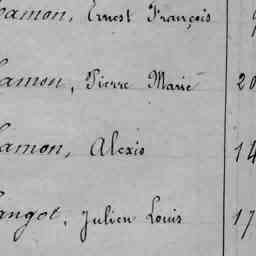 amon, Ernest François
amon, Pierre Marie 20
amon, Alexis 14
angot, Julien Louis 17